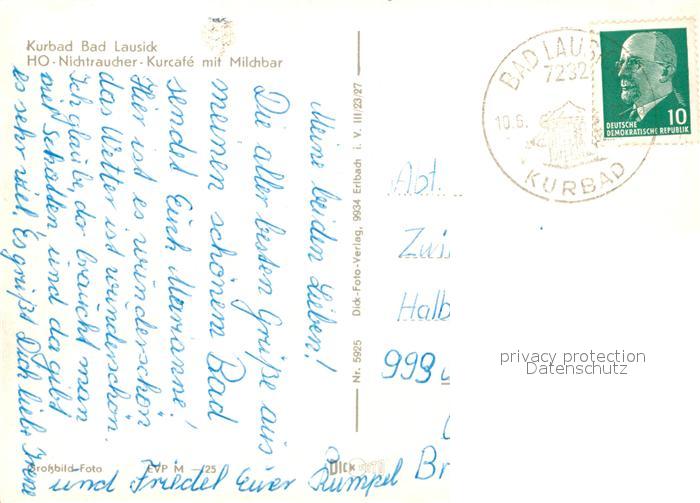 Kurbad Bad Lausick
HO-Nichtraucher-Kurcafé mit Milchbar
Meine beiden Lieben!
Die aller besten Grüße aus
meinen schönem Bad
sendet Euch Marianne!
Hier ist es wunderschön
das Wetter ist wunderschön.
Ich glaube, da braucht man
mit Schatten, und da gibt
es sehr viel. Es grüßt Dich liebe Irene
und Friedel Euer Rumpel
Großbild-Foto EVP M -,25
DICK FOTO
Nr. 5925 Dick-Foto-Verlag, 9934 Erlbach i. V. III/23/27
BAD LAUSICK
7232
10.6.
KURBAD
10
DEUTSCHE
DEMOKRATISCHE REPUBLIK
Abt.
Halb
993
Br
privacy protection
Datenschutz